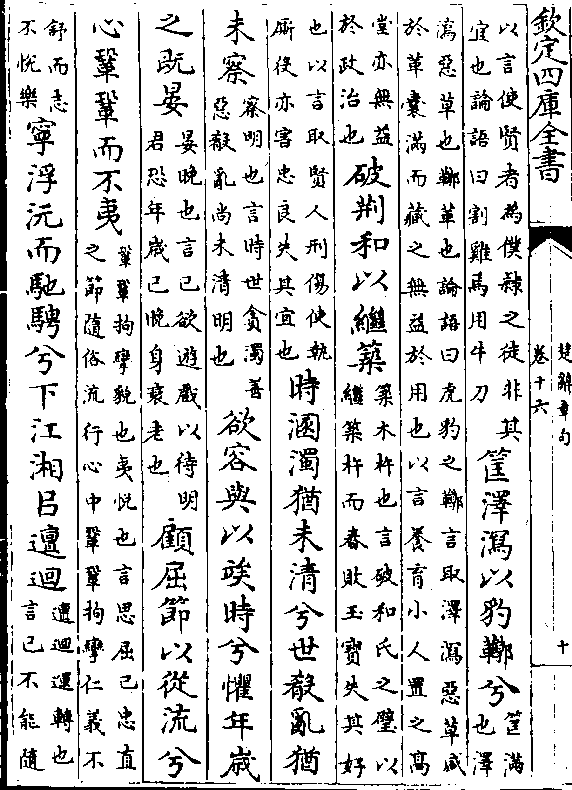 欽定四庫全書
楚辭章句
卷十六
十
以言使賢者為僕隷之徒非其
宜也論語曰割雞焉用牛刀
筐澤瀉以豹鞹兮
筐滿
也澤
瀉惡草也鞹革也論語曰虎豹之鞹言取澤瀉惡草盛
於革囊滿而藏之無益於用也以言養育小人置之髙
堂亦無益
於政治也
破荆和以繼築
築木杵也言破和氏之璧以
繼築杵而舂敗玉寳失其好
也以言取賢人刑傷使執
厮役亦害忠良失其宜也
時溷濁猶未清兮世殽亂猶
未察
察明也言時世貪濁善
惡殽亂尚未清明也
欲容與以竢時兮懼年歳
之既晏
晏晚也言已欲遊戲以待明
君恐年歳已晚身衰老也
顧屈節以從流兮
心鞏鞏而不夷
鞏鞏拘攣貌也夷悦也言思屈己忠直
之節隨俗流行心中鞏鞏拘攣仁義不
舒而志
不悦樂
寧浮沅而馳騁兮下江湘㠯邅迴
邅迴運轉也
言已不能隨